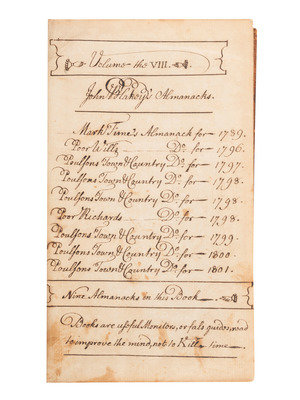 Volume the VIII.
John Blakey's Almanacks.
Mark Time's Almanack for — 1789.
Poor Will's D.º for — 1796.
Poulsons Town & Country D.º for — 1797.
Poulsons Town & Country D.º for — 1798.
Poulsons Town & Country D.º for — 1798.
Poor Richards D.º for — 1798.
Poulsons Town & Country D.º for — 1799
Poulsons Town & Country D.º for — 1800
Poulsons Town & Country D.º for — 1801.
Nine Almanacks in this Book
Books are useful Monitors, or fals guides read
to improve the mind, not to Kill time